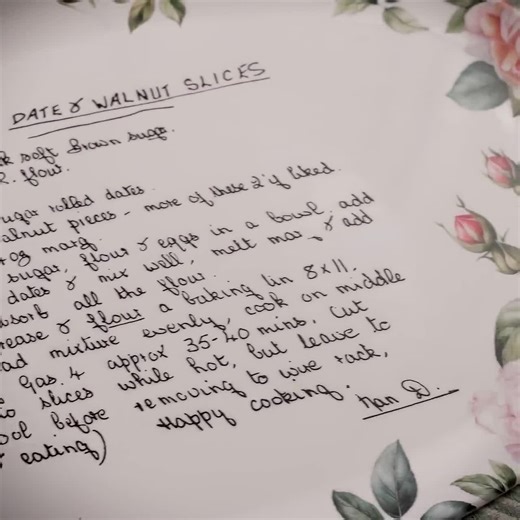 DATE & WALNUT SLICES
soft Brown sugar.
flour.
sugar rolled dates.
walnut pieces - more of these 2 if liked.
marg.
sugar, flour & eggs in a bowl, add
dates & mix well, melt mar & add
absorb all the flour.
grease & flour a baking tin 8x11.
mixture evenly, cook on middle
gas. 4 approx 35-40 mins. Cut
slices while hot, but leave to
cool before removing to wire rack,
eating)
Happy cooking.
Nan D.